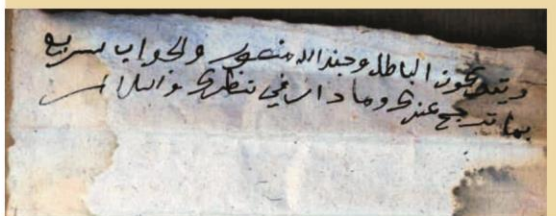 ويتصحون الباطل وجند الله منصور والجواب سريع
بما ترجح عندك وما دار في نظرك والسلام